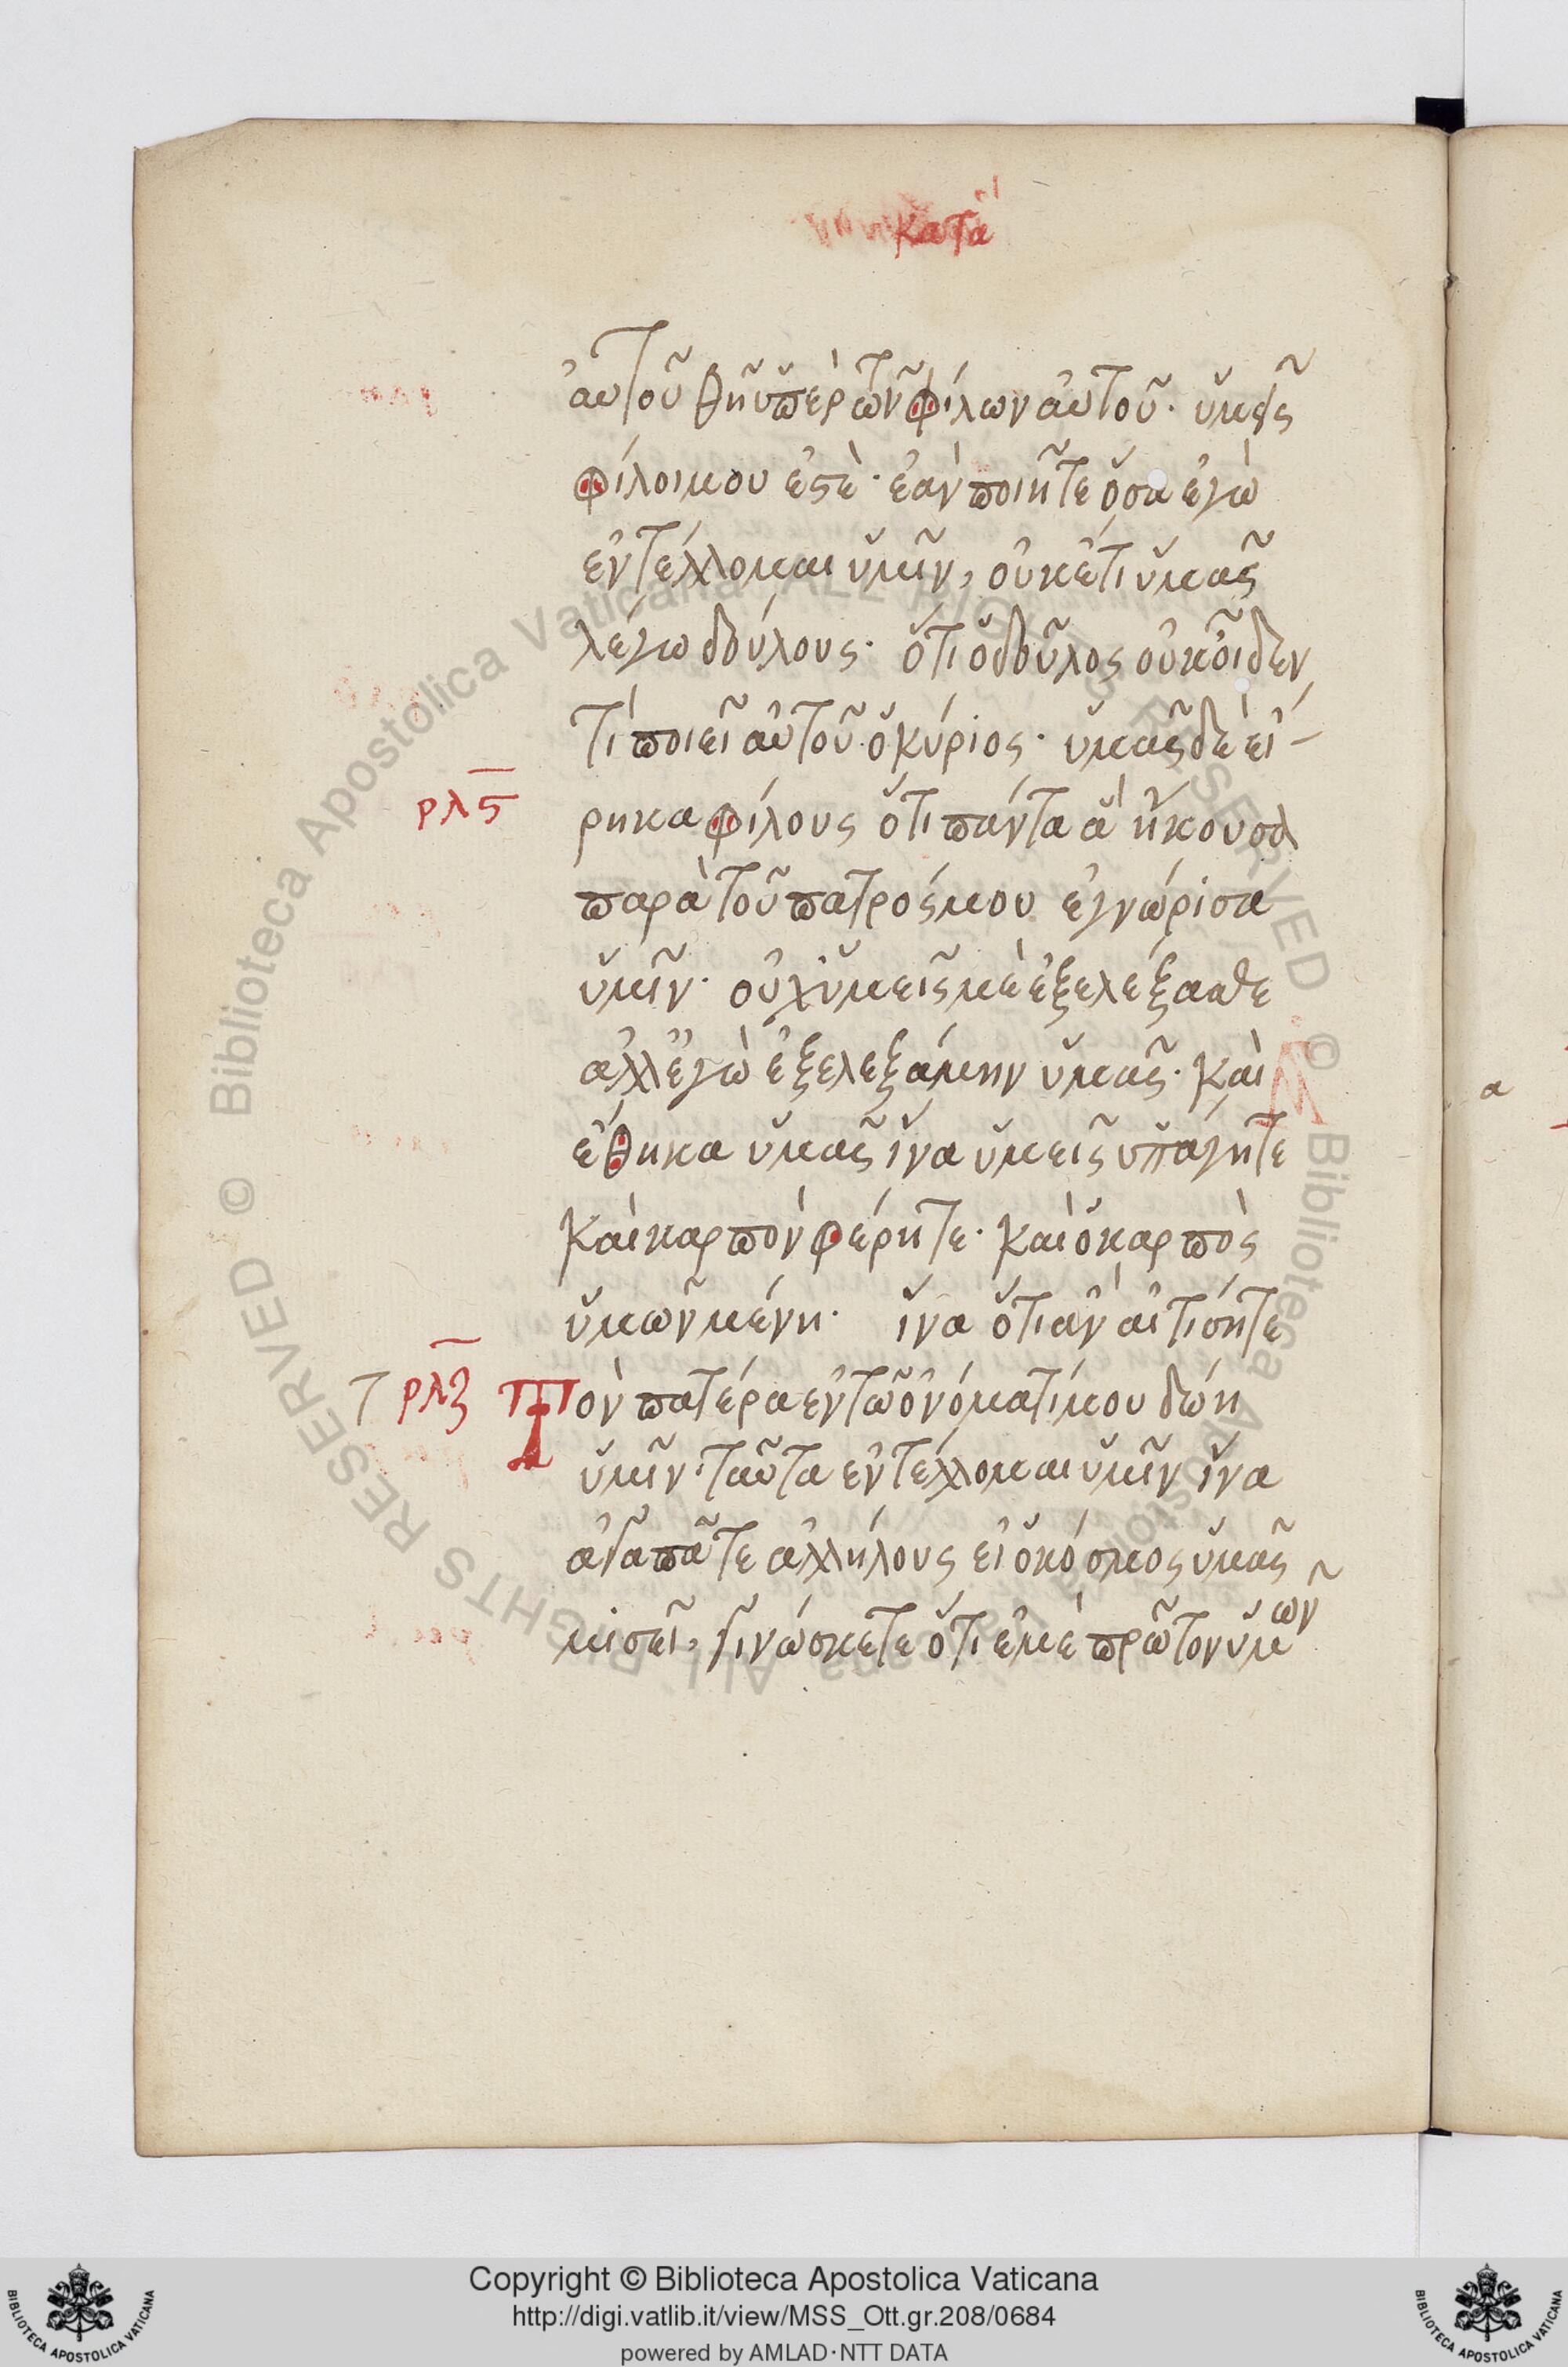 κατὰ
αὐτοῦ θῆ ὑπὲρ τῶν φίλων αὐτοῦ· ὑμεῖς
φίλοι μου ἐστὲ· ἐὰν ποιῆτε ὅσα ἐγὼ
ἐντέλλομαι ὑμῖν, οὐκέτι ὑμᾶς
λέγω δούλους· ὅτι ὁ δοῦλος οὐκ οἶδεν
τί ποιεῖ αὐτοῦ ὁ κύριος· ὑμᾶς δὲ εἴ-
ρλϛ ρηκα φίλους ὅτι πάντα ἃ ἤκουσα
παρὰ τοῦ πατρός μου ἐγνώρισα
ὑμῖν· οὐχ ὑμεῖς μὲ ἐξελέξασθε
ἀλλ ἐγὼ ἐξελεξάμην ὑμᾶς· καὶ
ἔθηκα ὑμᾶς ἵνα ὑμεῖς ὑπάγητε
καὶ καρπὸν φέρητε· καὶ ὁ καρπὸς
ὑμῶν μένη· ἵνα ὅτι ἂν αἰτίσητε
τ ρλζ τὸν πατέρα ἐν τῶ ὀνόματί μου δώη
ὑμῖν· ταῦτα ἐντέλλομαι ὑμῖν ἵνα
ἀγαπᾶτε ἀλλήλους εἰ ὁ κόσμος ὑμᾶς
μισεῖ, γινώσκετε ὅτι ἐμὲ πρῶτον ὑμῶν
α
© Biblioteca Apostolica Vaticana ALL RIGHTS RESERVED © Biblioteca Apostolica Vaticana ALL RIGHTS RESERVED
Copyright © Biblioteca Apostolica Vaticana
http://digi.vatlib.it/view/MSS_Ott.gr.208/0684
powered by AMLAD·NTT DATA
BIBLIOTECA APOSTOLICA VATICANA
BIBLIOTECA APOSTOLICA VATICANA